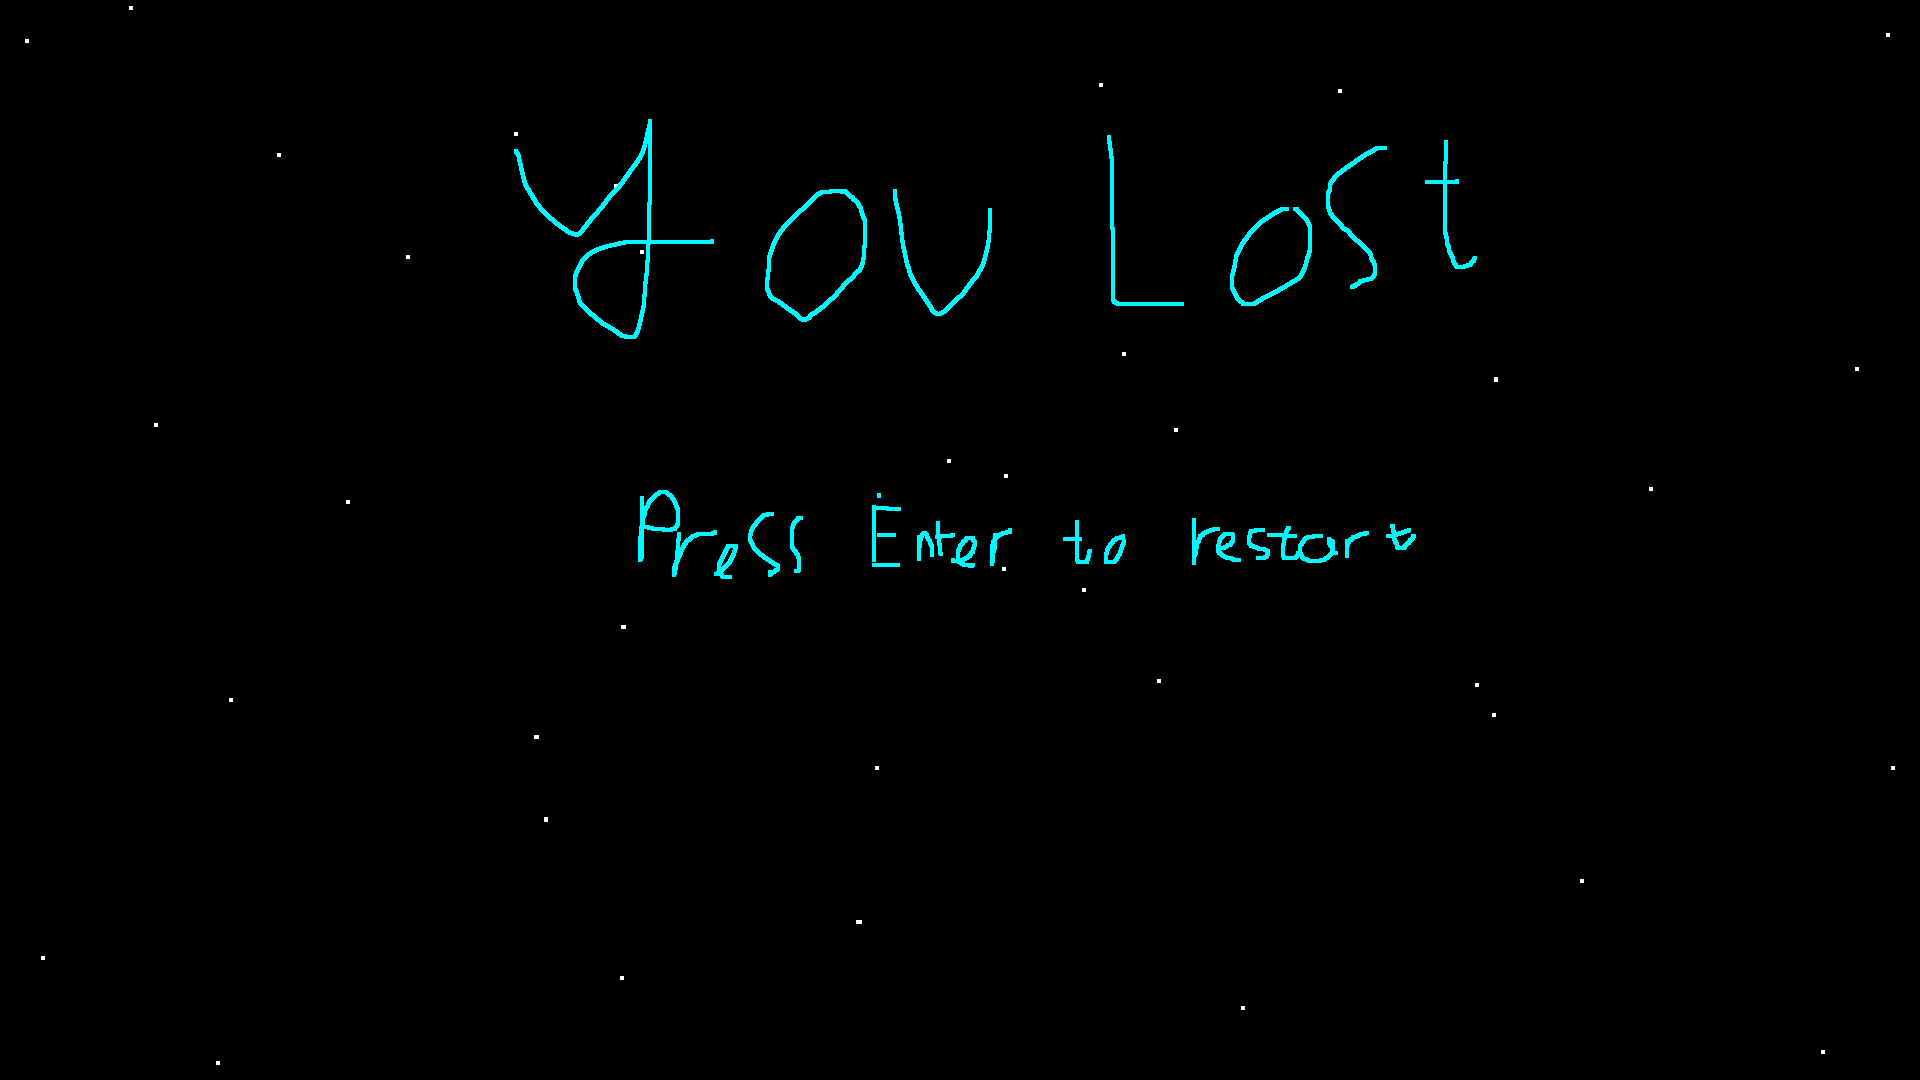 You Lost
Press Enter to restart